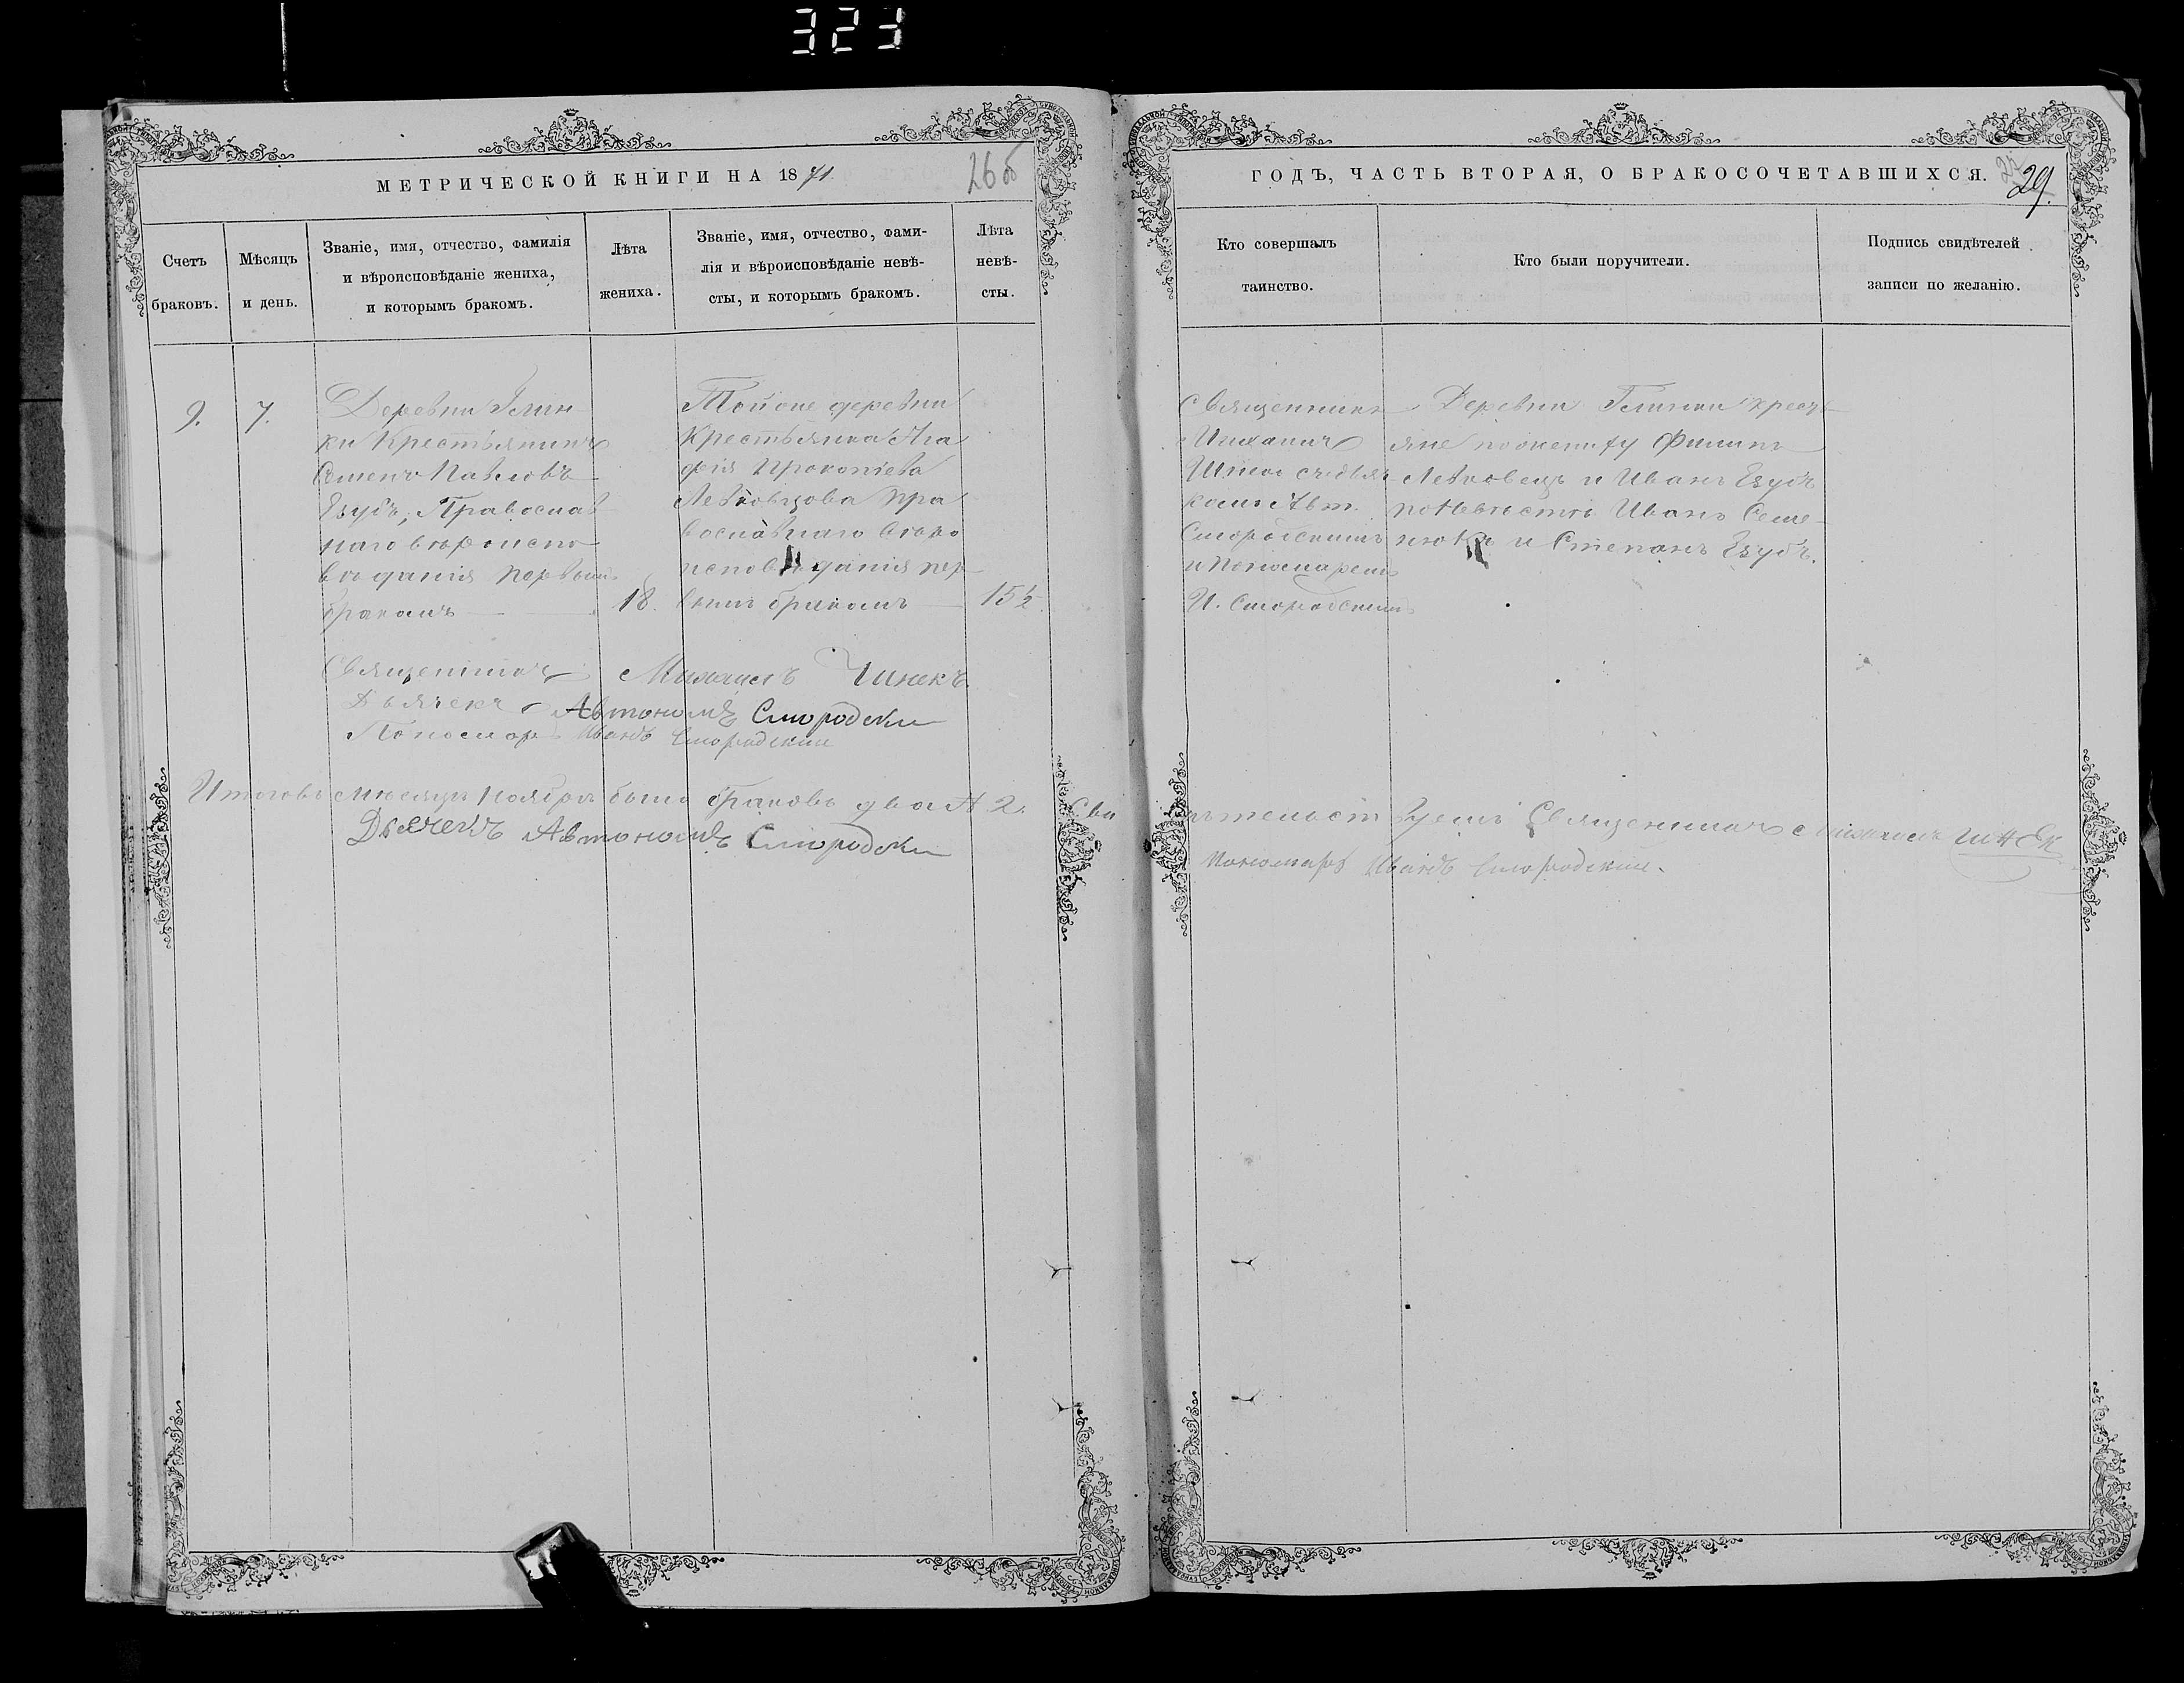 323
МЕТРИЧЕСКОЙ КНИГИ НА 1871
26 об
Счетъ браковъ.
Мѣсяцъ и день.
Званіе, имя, отчество, фамилія
и вѣроисповѣданіе жениха,
и которымъ бракомъ.
Лѣта жениха.
Званіе, имя, отчество, фами-
лія и вѣроисповѣданіе невѣ-
сты, и которымъ бракомъ.
Лѣта невѣ-
сты.
9.
7.
Деревни Глин
ки Крестьянинъ
Семенъ Павловъ
Езубъ, Православ
наго вѣроиспо
вѣданія первымъ
бракомъ
18.
Тойже деревни
Крестьянка Ага
фія Прокопіева
Левковцова пра
вославнаго вѣро
исповѣданія пер
вымъ бракомъ
15½.
Священникъ Михаилъ Чинекъ.
Дьячекъ Автономъ Смородски
Пономарь Иванъ Смородскій
Итого въ мѣсяцѣ ноябрѣ было браковъ два № 2.
Дьячекъ Автономъ Смородски
ГОДЪ, ЧАСТЬ ВТОРАЯ, О БРАКОСОЧЕТАВШИХСЯ.
29.
Кто совершалъ
таинство.
Кто были поручители.
Подпись свидѣтелей
записи по желанію.
Священникъ
съ дья
комъ Авт.
Смородскимъ
и Пономаремъ
И. Смородскимъ
Деревни Глинки крестъ
яне по жениху Филипъ
Левковецъ и Иванъ Езубъ
по невѣстѣ Иванъ Семе
нюкъ и Степанъ Езубъ.
Священникъ Михаилъ
Пономарь Иванъ Смородскій.